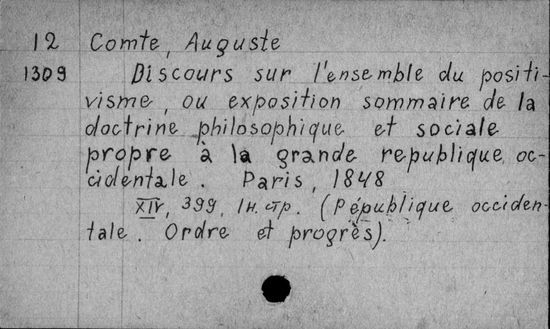 12 Comte, Auguste
1309 Discours sur l'ensemble du positi-
visme, ou exposition sommaire de la
doctrine philosophique et sociale
propre à la grande republique oc-
cidentale. Paris, 1848
XIV, 399, 1 н. стр. (Рépublique occiden-
tale. Ordre et progrès).